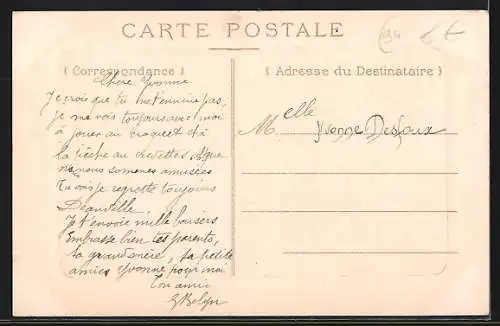 CARTE POSTALE
( Correspondance )
( Adresse du Destinataire )
Chère Yvonne
Je crois que tu ne t'ennuie pas,
je me vois toujours avec mon
à jouer au croquet et à
la pêche au crevettes
nous sommes amusées
Tu vois je regrette toujours
Deauville.
Je t'envoie mille baisers
Embrasse bien tes parents,
ta grand'mère, ta petite
amies Yvonne pour moi
Ton amie
Melle
Yvonne